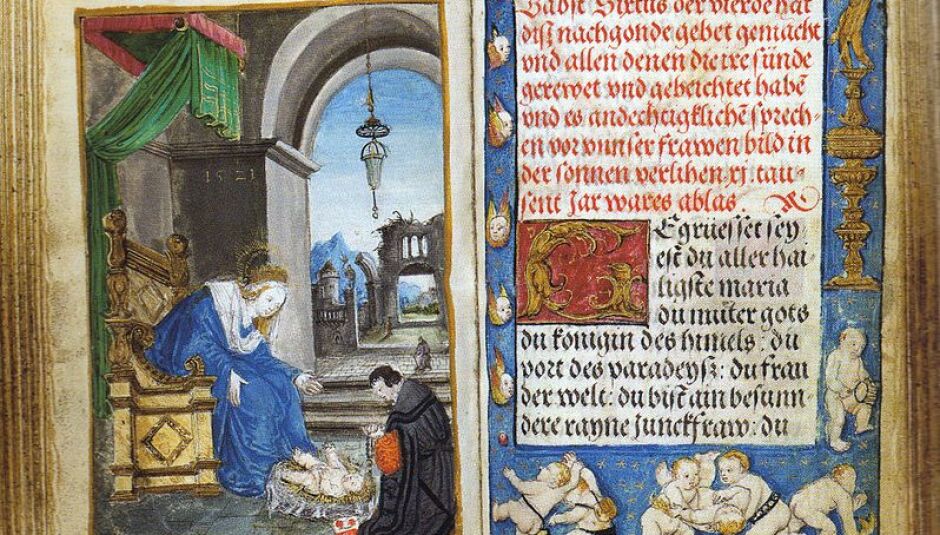 1521
Babst Sixtus der vierde hat
disz nachgonde gebet gemacht
vnd allen denen die ire sünde
gerewet vnd gebeichtet habē
vnd es andechtigklichē sprech-
en vor vnnser frawen bild in
der sonnen verlihen .xj. tau-
sent Jar wares ablas.
GEgruesset sey-
est du aller hai-
ligste maria
du můter gots
du konigin des himels: du
port des paradeysz: du frau
der welt: du bist ain besunn-
dere rayne Junckfraw: du